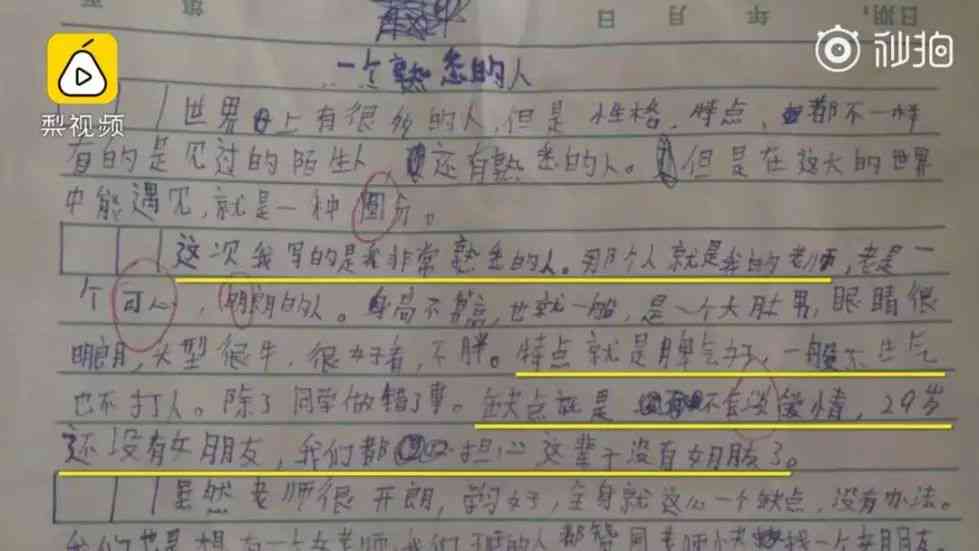 日期: 年 月 日
梨视频
秒拍
一个熟悉的人
世界上有很多的人,但是性格、特点,都不一样
有的是见过的陌生人,还有熟悉的人。但是在这大的世界
中能遇见,就是一种圆分。
这次我写的是我非常熟悉的人。那个人就是我的老师,老是一
个可心,明朗的人。身高不算高,也就一般,是一个大肚男,眼睛很
明朗,大型很牛,很好看,不胖。特点就是脾气好,一般不生气
也不打人。除了同学做错了事。缺点就是不会谈爱情,29岁
还没有女朋友,我们都担心这辈子没有女朋友了。
虽然老师很开朗,学习好,全身就这么一个缺点,没有办法。
我们也是想有一个女老师,我们班的人都替周老师找一个女朋友。